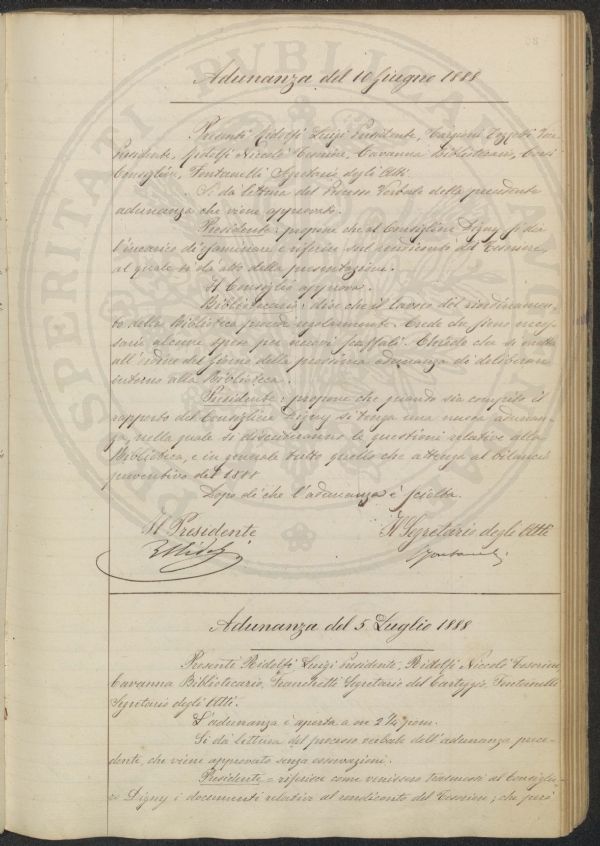 Adunanza del 10 Giugno 1888
Presenti Ridolfi Luigi Presidente, Targioni Tozzetti Vice
Presidente, Ridolfi Niccolò Tesoriere, Cavanna Bibliotecario,
Consigliere, Fontanelli Segretario degli Atti.
Si dà lettura del Processo Verbale della precedente
adunanza che viene approvato.
Presidente: propone che al Consigliere Digny si dia
l'incarico di esaminare e riferire sul rendiconto del Tesoriere,
al quale si dà atto della presentazione.
Il Consiglio approva.
Bibliotecario: dice che il lavoro del riordinamen-
to della Biblioteca procede regolarmente. Crede che sieno neces
sarie alcune spese per nuovi scaffali. Chiede che si metta
all'ordine del giorno della prossima adunanza di deliberare
intorno alla Biblioteca.
Presidente: propone che quando sia compito il
rapporto del Consigliere Digny si tenga una nuova adunan-
za, nella quale si discuteranno le questioni relative alla
Biblioteca, e in generale tutto quello che attenga al Bilancio
preventivo del 1888
Dopo di che l'adunanza è sciolta.
Il Presidente
Il Segretario degli Atti
LRidolfi
Fontanelli
Adunanza del 5 Luglio 1888
Presenti Ridolfi Luigi Presidente, Ridolfi Niccolò Tesoriere
Cavanna Bibliotecario, Franchetti Segretario del Carteggio, Fontanelli
Segretario degli Atti.
L'adunanza è aperta a ore 2¼ pom.
Si dà lettura del processo verbale dell'adunanza prece-
dente, che viene approvato senza osservazioni.
Presidente = riferisce come venissero trasmessi al Consiglie-
re Digny i documenti relativi al rendiconto del Tesoriere; che però